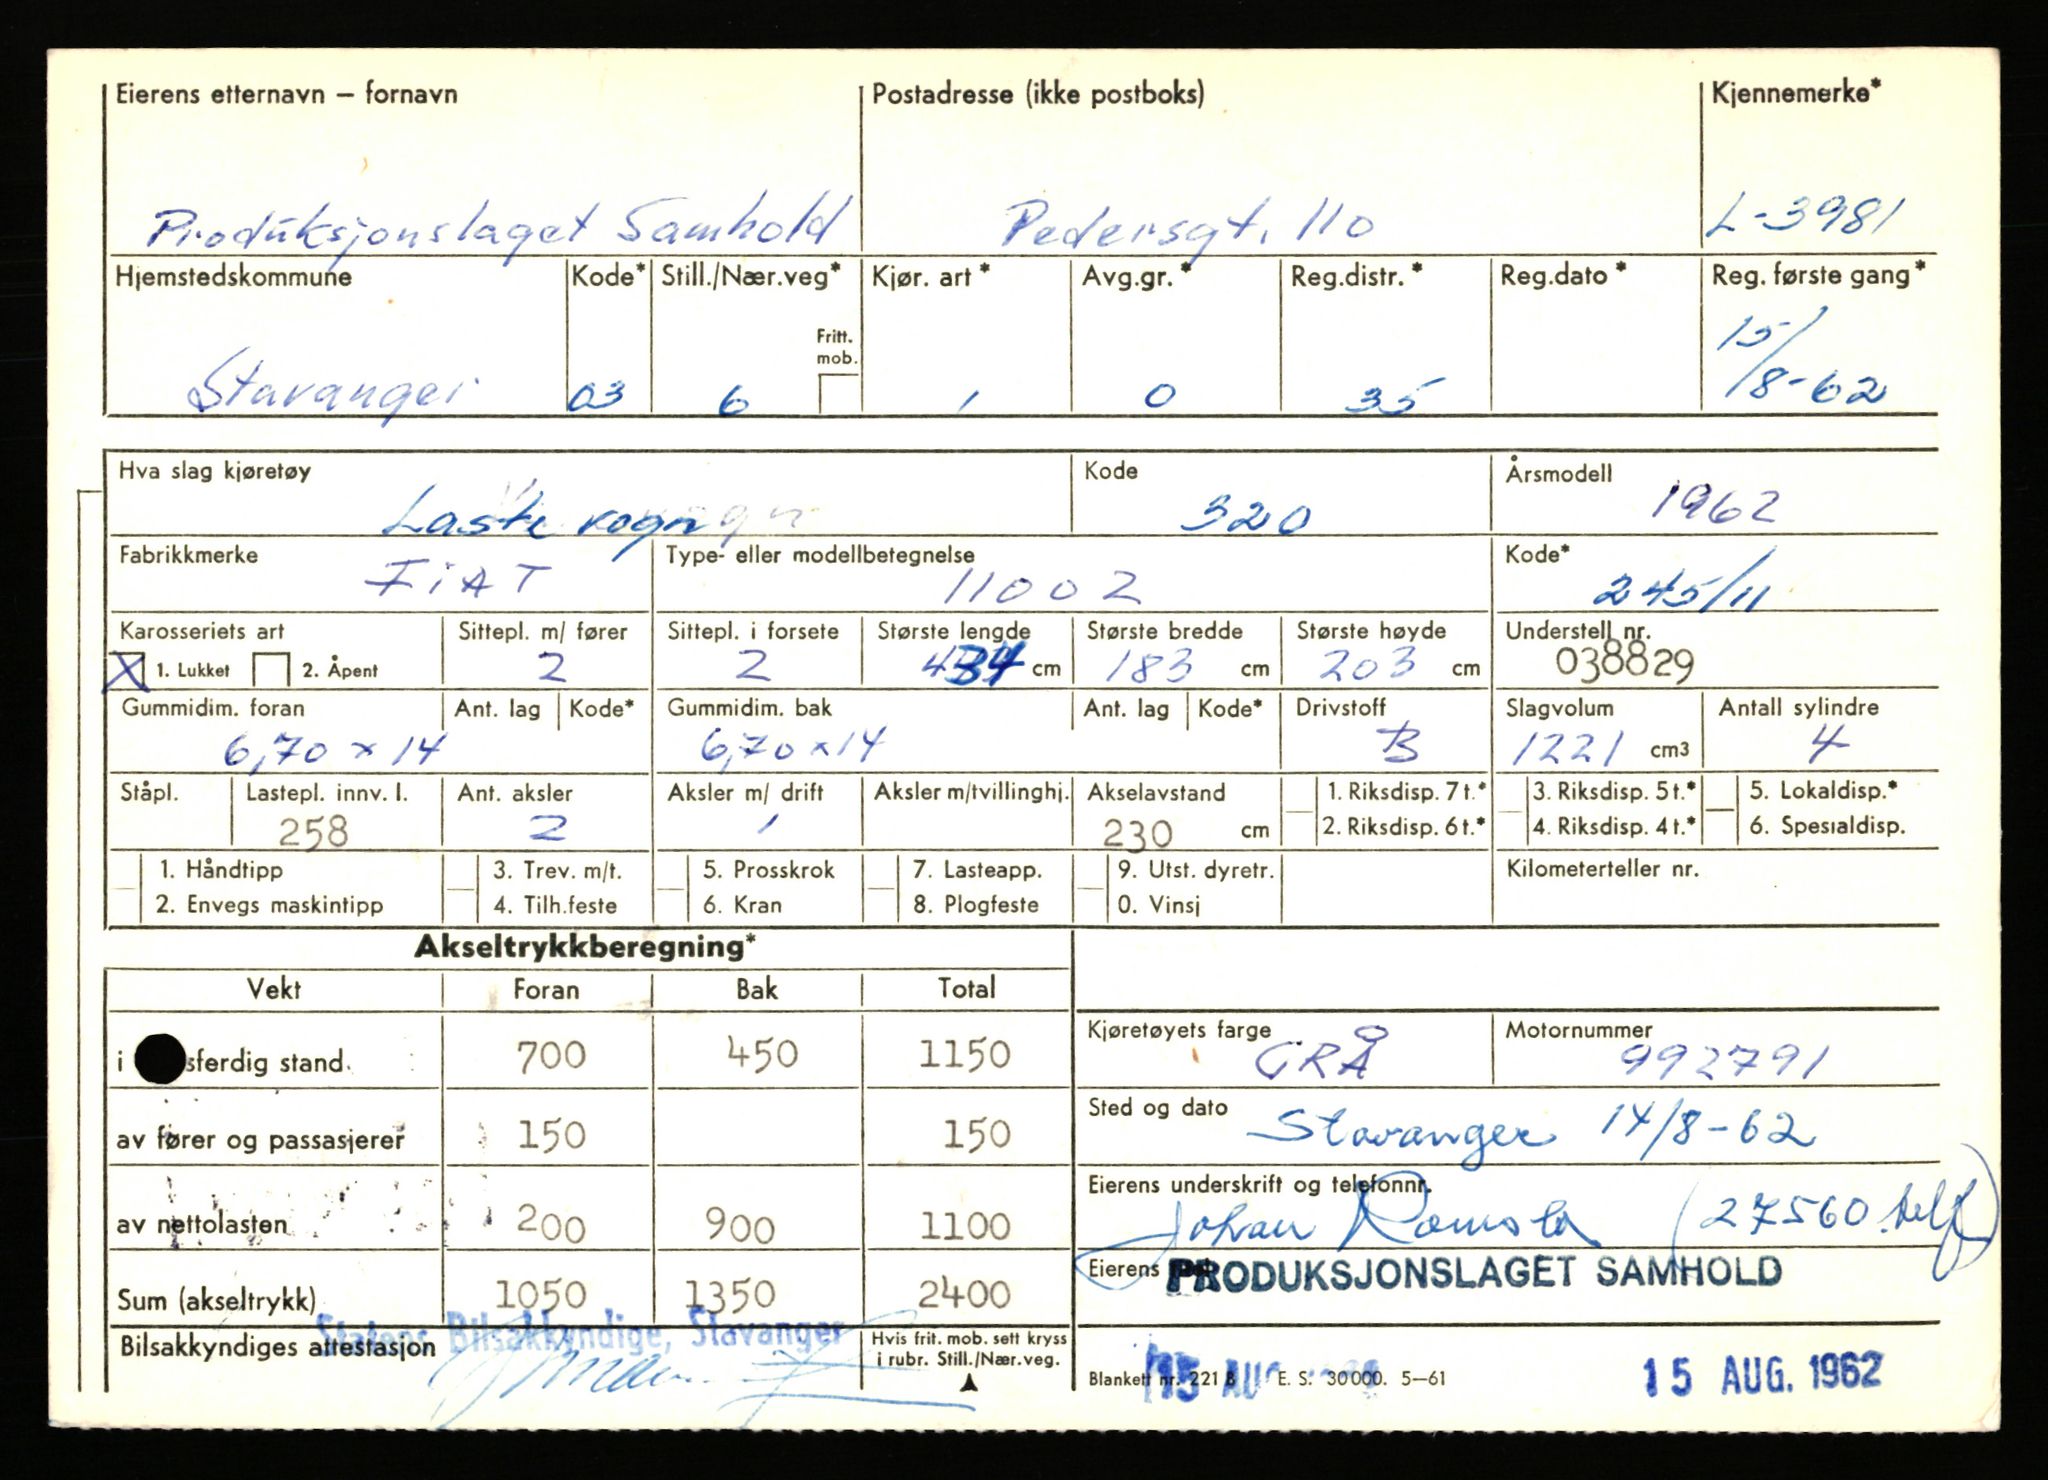 Eierens etternavn – fornavn Postadresse (ikke postboks) Kjennemerke*
Produksjonslaget Samhold Pedersgt. 110 L-3981
Hjemstedskommune Kode* Still./Nær.veg* Kjør. art* Avg.gr.* Reg.distr.* Reg.dato* Reg. første gang*
Fritt. mob.
Stavanger 03 6 1 0 35 15/8-62
Hva slag kjøretøy Kode Årsmodell
Laste vogn 320 1962
Fabrikkmerke Type- eller modellbetegnelse Kode*
FIAT 1100 2 245/11
Karosseriets art Sittepl. m/ fører Sittepl. i forsete Største lengde Største bredde Største høyde Understell nr.
X 1. Lukket 2. Åpent 2 2 434 cm 183 cm 203 cm 038829
Gummidim. foran Ant. lag Kode* Gummidim. bak Ant. lag Kode* Drivstoff Slagvolum Antall sylindre
6,70 x 14 6,70 x 14 B 1221 cm3 4
Ståpl. Lastepl. innv. l. Ant. aksler Aksler m/ drift Aksler m/tvillinghj. Akselavstand 1. Riksdisp. 7 t.* 3. Riksdisp. 5 t.* 5. Lokaldisp.*
258 2 1 230 cm 2. Riksdisp. 6 t.* 4. Riksdisp. 4 t.* 6. Spesialdisp.
1. Håndtipp 3. Trev. m/t. 5. Prosskrok 7. Lasteapp. 9. Utst. dyretr. Kilometerteller nr.
2. Envegs maskintipp 4. Tilh.feste 6. Kran 8. Plogfeste 0. Vinsj
Akseltrykkberegning*
Vekt Foran Bak Total
i sferdig stand 700 450 1150
Kjøretøyets farge Motornummer
GRÅ 992791
av fører og passasjerer 150 150
Sted og dato Stavanger 14/8-62
av nettolasten 200 900 1100
Eierens underskrift og telefonnr.
Johan (27560
Sum (akseltrykk) 1050 1350 2400
Eierens PRODUKSJONSLAGET SAMHOLD
Statens Bilsakkyndige, Stavanger
Bilsakkyndiges attestasjon Hvis frit. mob. sett kryss
i rubr. Still./Nær.veg.
Blankett nr. 221 B E. S. 30000. 5–61
15 AUG
15 AUG. 1962